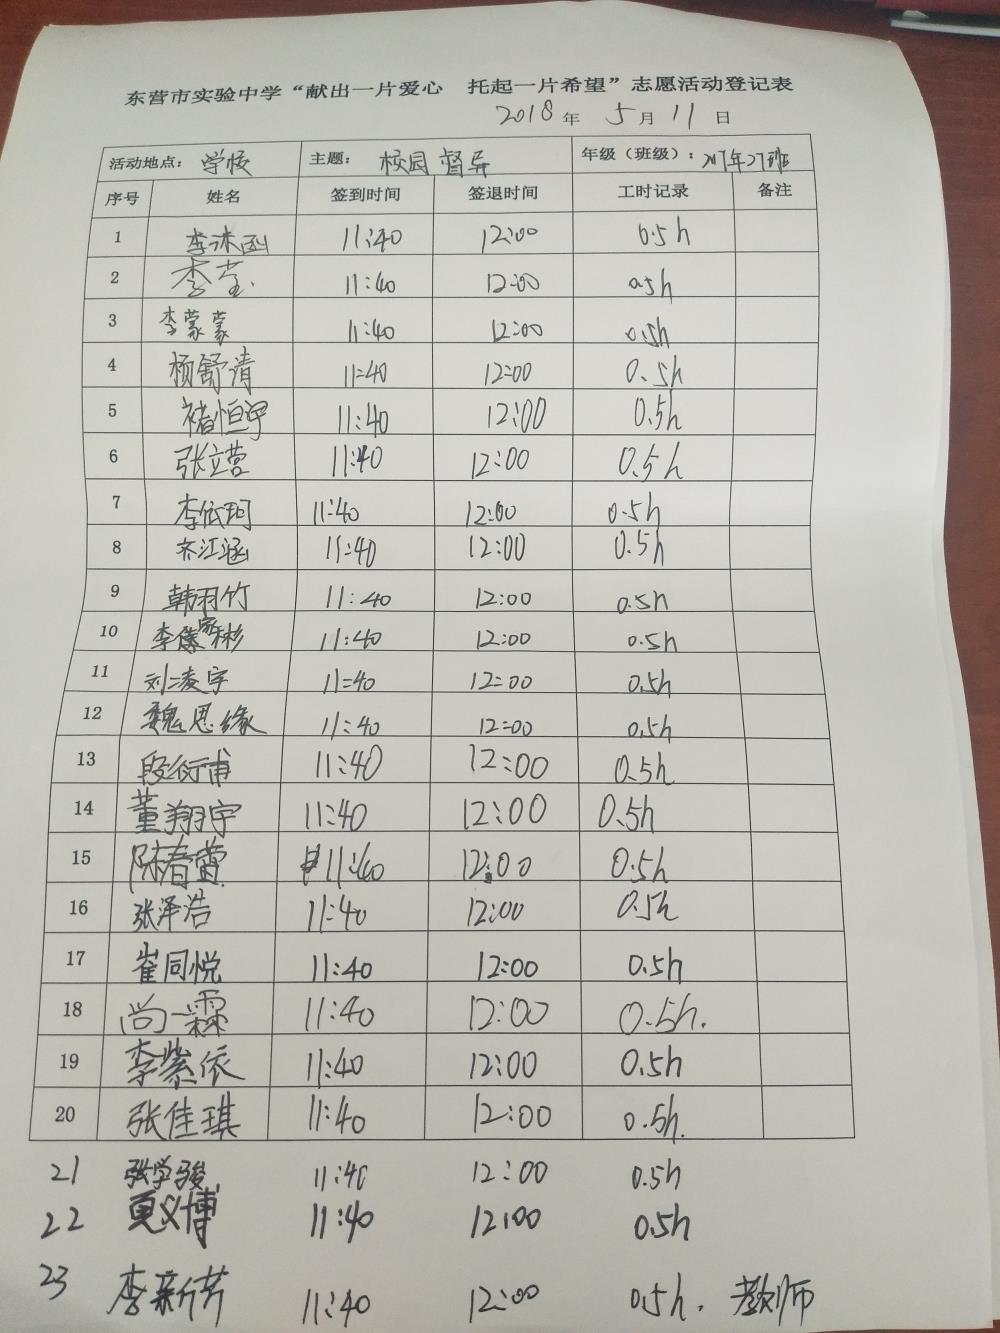 东营市实验中学“献出一片爱心 托起一片希望”志愿活动登记表
2018年 5月 11日
活动地点：学校 主题：校园督导 年级（班级）：2017年27班
序号 姓名 签到时间 签退时间 工时记录 备注
1 李沐函 11:40 12:00 0.5h
2 李莹 11:40 12:00 0.5h
3 李蒙蒙 11:40 12:00 0.5h
4 杨舒清 11:40 12:00 0.5h
5 褚恒宇 11:40 12:00 0.5h
6 张立营 11:40 12:00 0.5h
7 李依珂 11:40 12:00 0.5h
8 齐江涵 11:40 12:00 0.5h
9 韩羽竹 11:40 12:00 0.5h
10 李家彬 11:40 12:00 0.5h
11 刘凌宇 11:40 12:00 0.5h
12 魏思缘 11:40 12:00 0.5h
13 段衍甫 11:40 12:00 0.5h
14 董翔宇 11:40 12:00 0.5h
15 陈春蕾 11:40 12:00 0.5h
16 张泽浩 11:40 12:00 0.5h
17 崔同悦 11:40 12:00 0.5h
18 尚一霖 11:40 12:00 0.5h.
19 李紫依 11:40 12:00 0.5h
20 张佳琪 11:40 12:00 0.5h.
21 张学骏 11:40 12:00 0.5h
22 11:40 12:00 0.5h
23 李新芳 11:40 12:00 0.5h. 教师